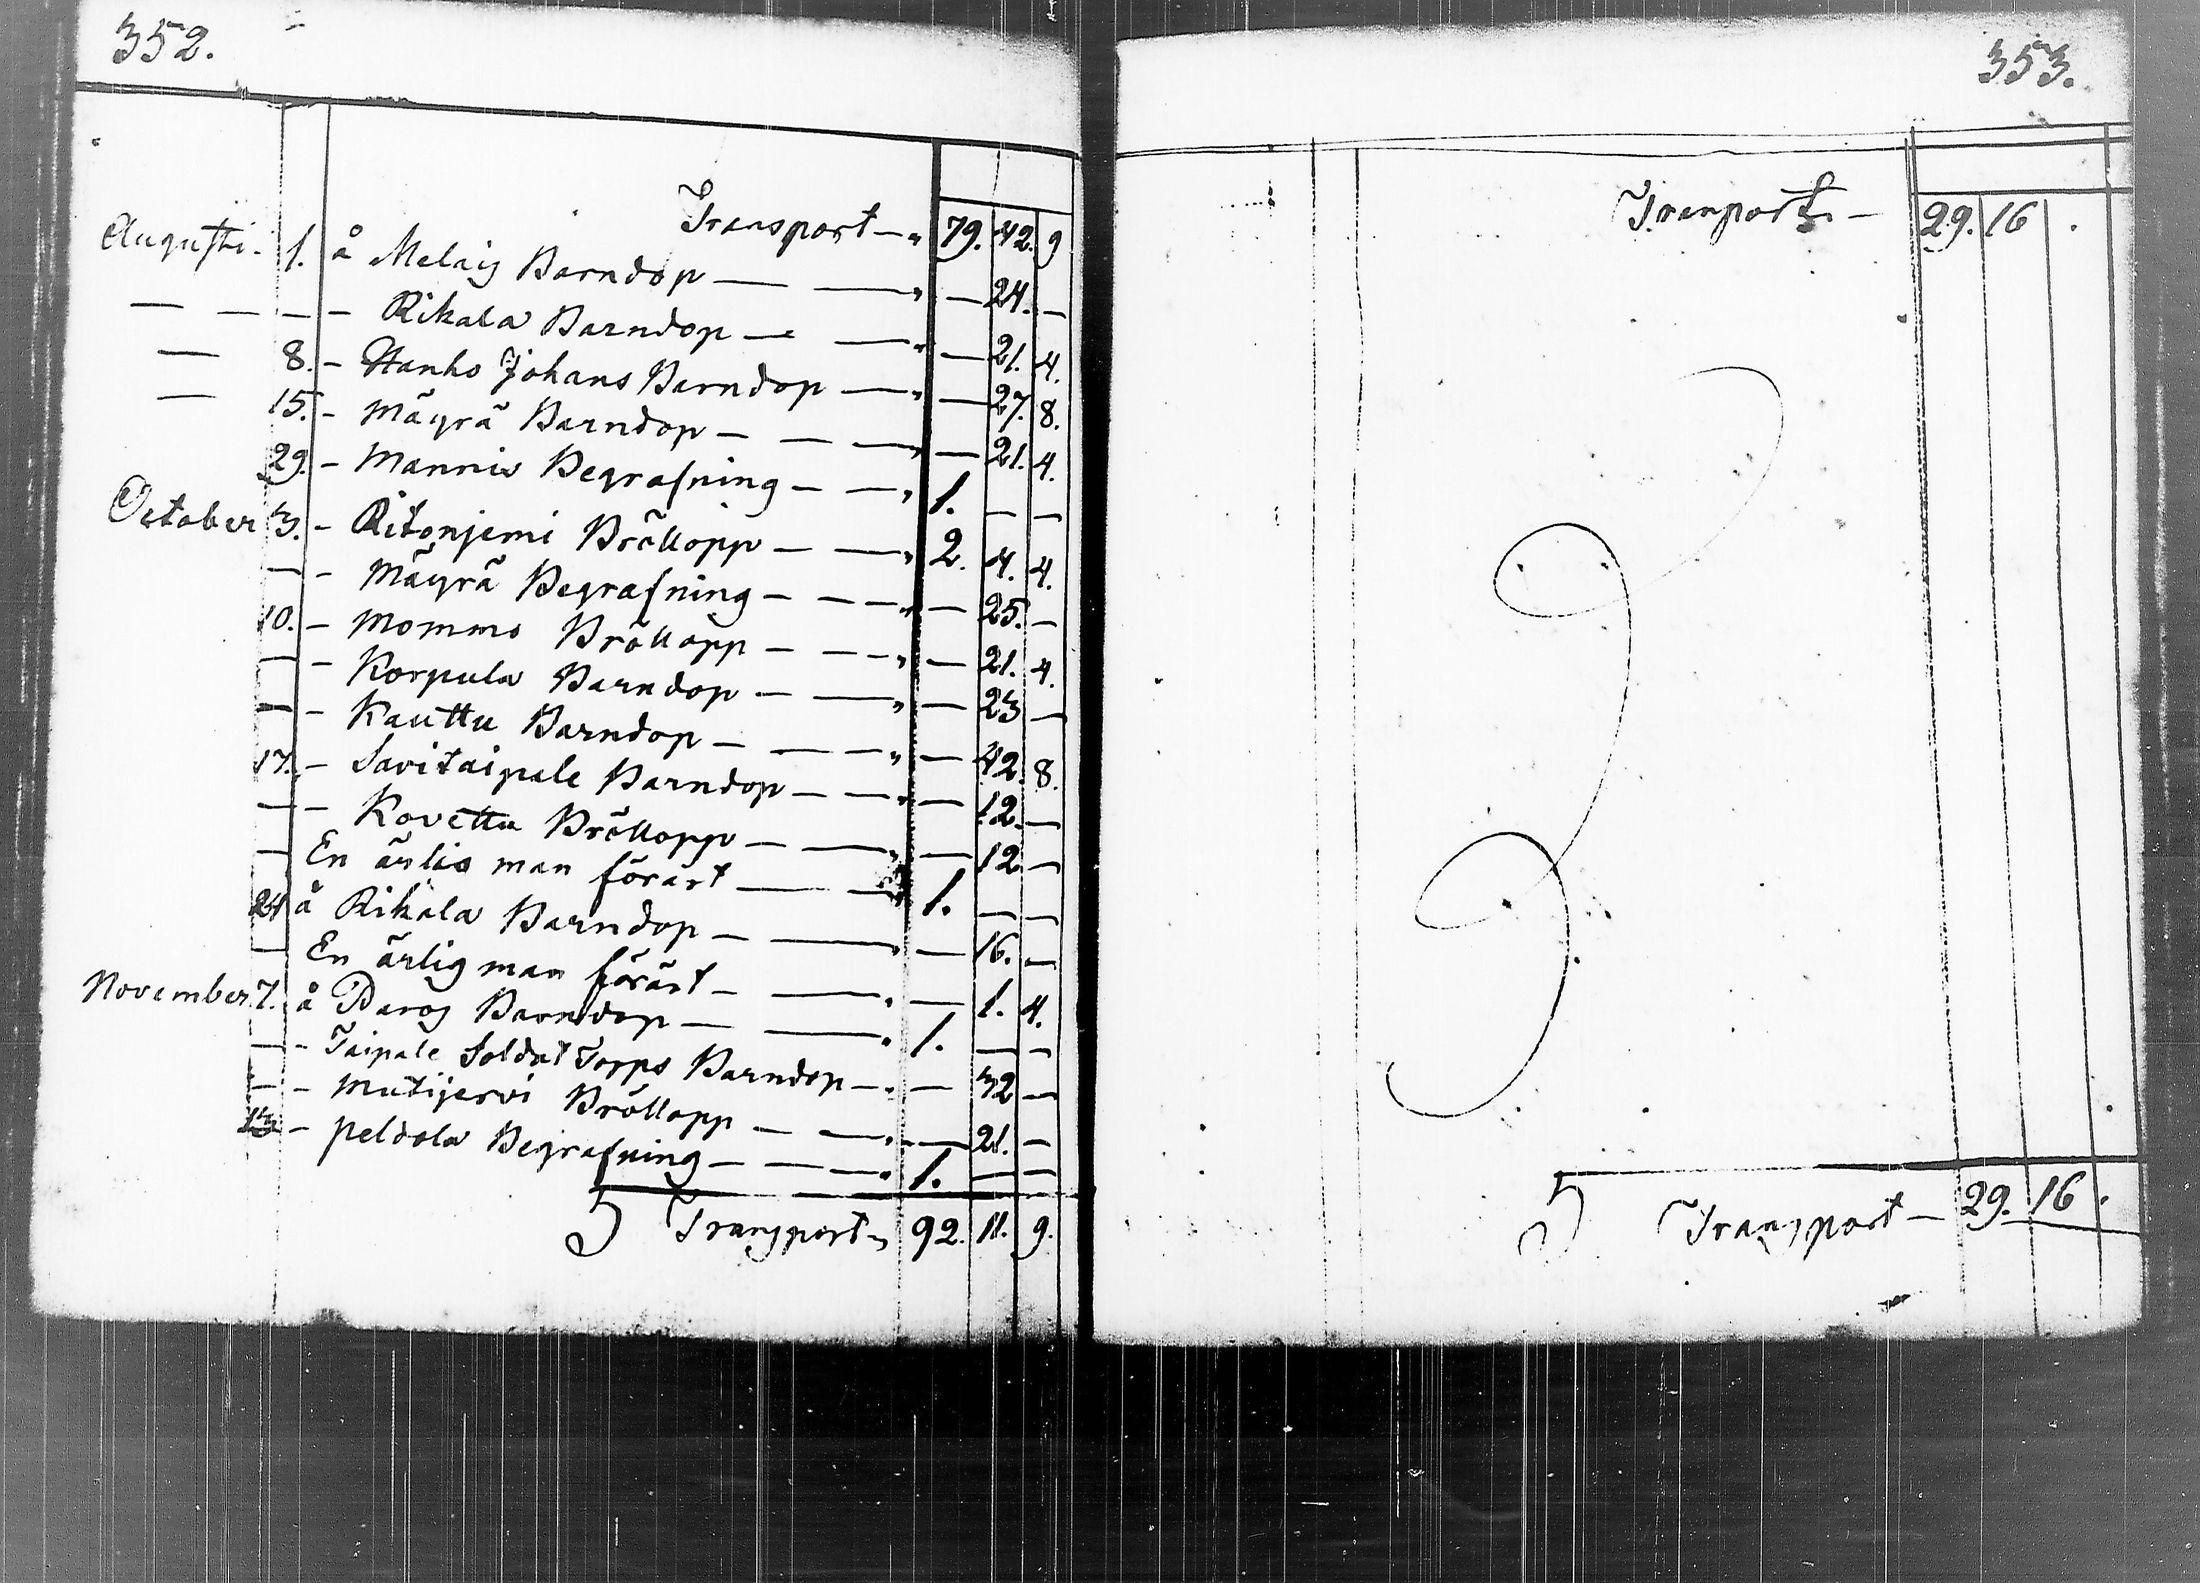 352.
Transport — " 79. 42. 9
Augusti. 1. å Melais Barndop — — " — 24. —
— — — – Rikala Barndop — — " — 21. 4.
— 8. – Hanko Johans Barndop — " — 27. 8.
— 15. – Mäyrä Barndop — — — " — 21. 4.
29. – Mannis Begrafning — — " 1. — —
October 3. – Ritonjemi Bröllopp — — " 2. 4. 4.
— – Mäyrä Begrafning — — — " — 25. —
10. – Mommo Bröllopp — — — " — 21. 4.
— – Korpula Barndop — — " — 23 —
— – Kauttu Barndop — — — " — 42. 8.
17. – Savitaipale Barndop — — " — 12. —
— – Kovettu Bröllopp — — " — 12. —
— En ärlig man förärt — — 1. — —
24 å Rikala Barndop — — " — 16. —
— En ärlig man förärt — — " — 1. 4.
November 7. å Barndop — — " 1. — —
— – Taipale Soldat Torps Barndop — " — 32 —
— – Mutijervi Bröllopp — — " — 21. —
13 – Peldola Begrafning — — — " 1. — —
Transport — " 92. 11. 9.
353.
Transport — 29. 16 .
Transport — 29. 16 .